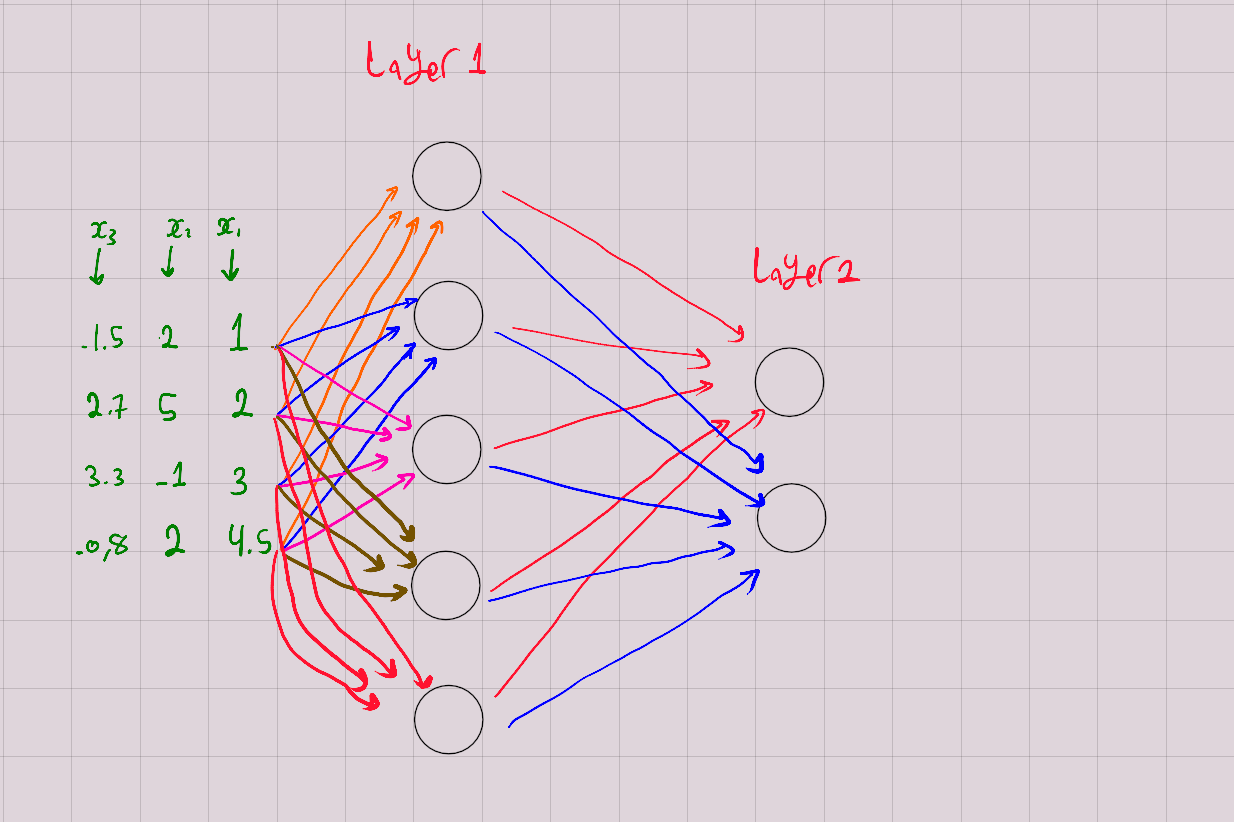 Layer 1
Layer 2
x₃ x₂ x₁
-1.5 2 1
2.7 5 2
3.3 -1 3
-0,8 2 4.5